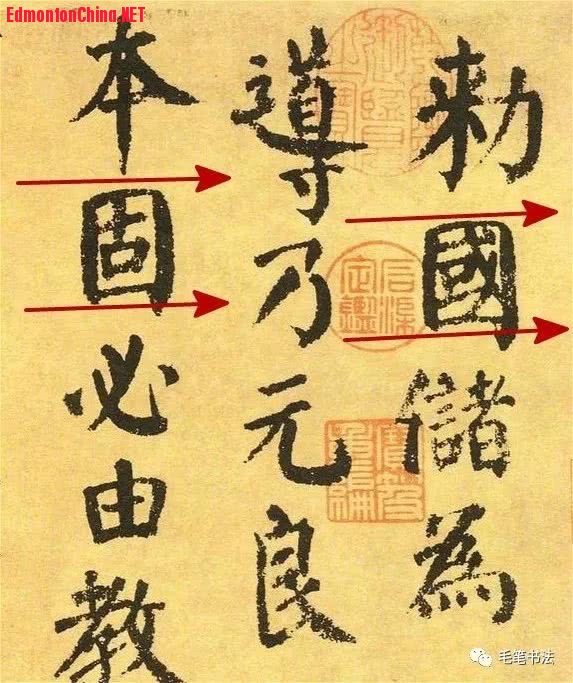 EdmontonChina.NET
勅國儲為
導乃元良
本固必由教
毛笔书法